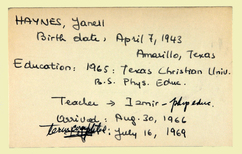 HAYNES, Janell
Birth date: April 7, 1943
Amarillo, Texas
Education: 1965: Texas Christian Univ.
B.S. Phys. Educ.
Teacher → Izmir - phy educ.
Arrived: Aug. 30, 1966
July 16, 1969